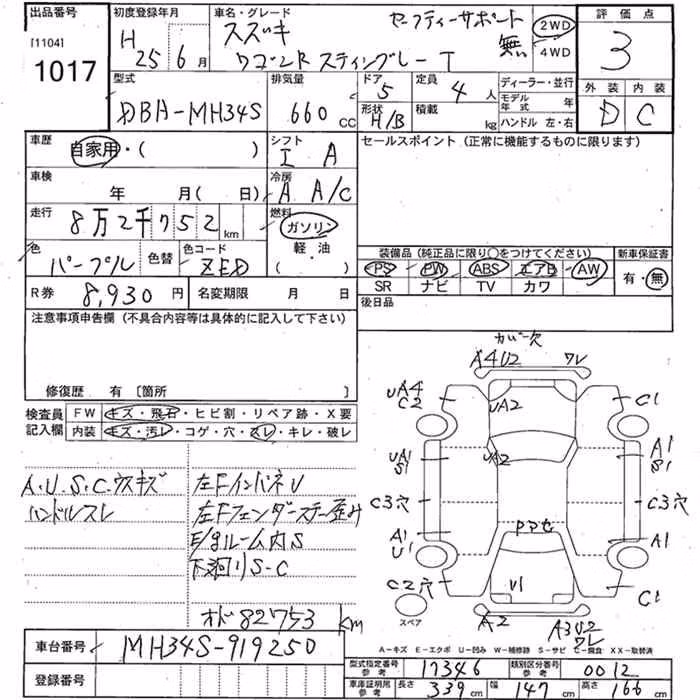 出品番号 初度登録年月 車名・グレード 評価点
[1104] H スズキ セーフティーサポート 無 2WD 3
1017 25 6月 ワゴンR スティングレー T 4WD
外装 内装
型式 排気量 ドア 定員 ディーラー・並行 D C
DBA-MH34S 660 CC 5 4人 モデル年式 年
形状 H/B 積載 kg ハンドル 左・右
車歴 自家用・( ) シフト I A セールスポイント (正常に機能するものに限ります)
車検 年 月 (日) 冷房 A A/C
走行 8万2千752km 燃料 ガソリン
軽・油
( )
色 パープル 色替 色コード ZED 装備品 (純正品に限り○をつけてください) 新車保証書
PS PW ABS エアB AW 有・無
SR ナビ TV カワ
R券 8,930円 名変期限 月 日 後日品
注意事項申告欄 (不具合内容等は具体的に記入して下さい)
修復歴 有 [箇所 ]
検査員 FW キズ・飛石・ヒビ割・リペア跡・X要
記入欄 内装 キズ・汚レ・コゲ・穴・スレ・キレ・破レ
A.U.S.C.ウスキズ 左FインパネU
ハンドルスレ 左Fフェンダーステー歪み
E/gルーム内S
下廻りS-C
オド82753km
カバー欠
A4U2 ワレ
UA4
C2 UA2 C1
UA1
S1 UA2 A1
S1
C3穴 C3穴
PPセ
A1
U1 A1
C2穴 U1 C1
スペア A2 A3U2
ワレ
A-キズ E-エクボ U-凹み W-補修跡 S-サビ C-腐食 XX-取替済
車台番号 MH34S-919250
登録番号
型式指定番号 参考 17346 類別区分番号 参考 0012
車庫証明用 参考 長さ 339cm 幅 147cm 高さ 166cm